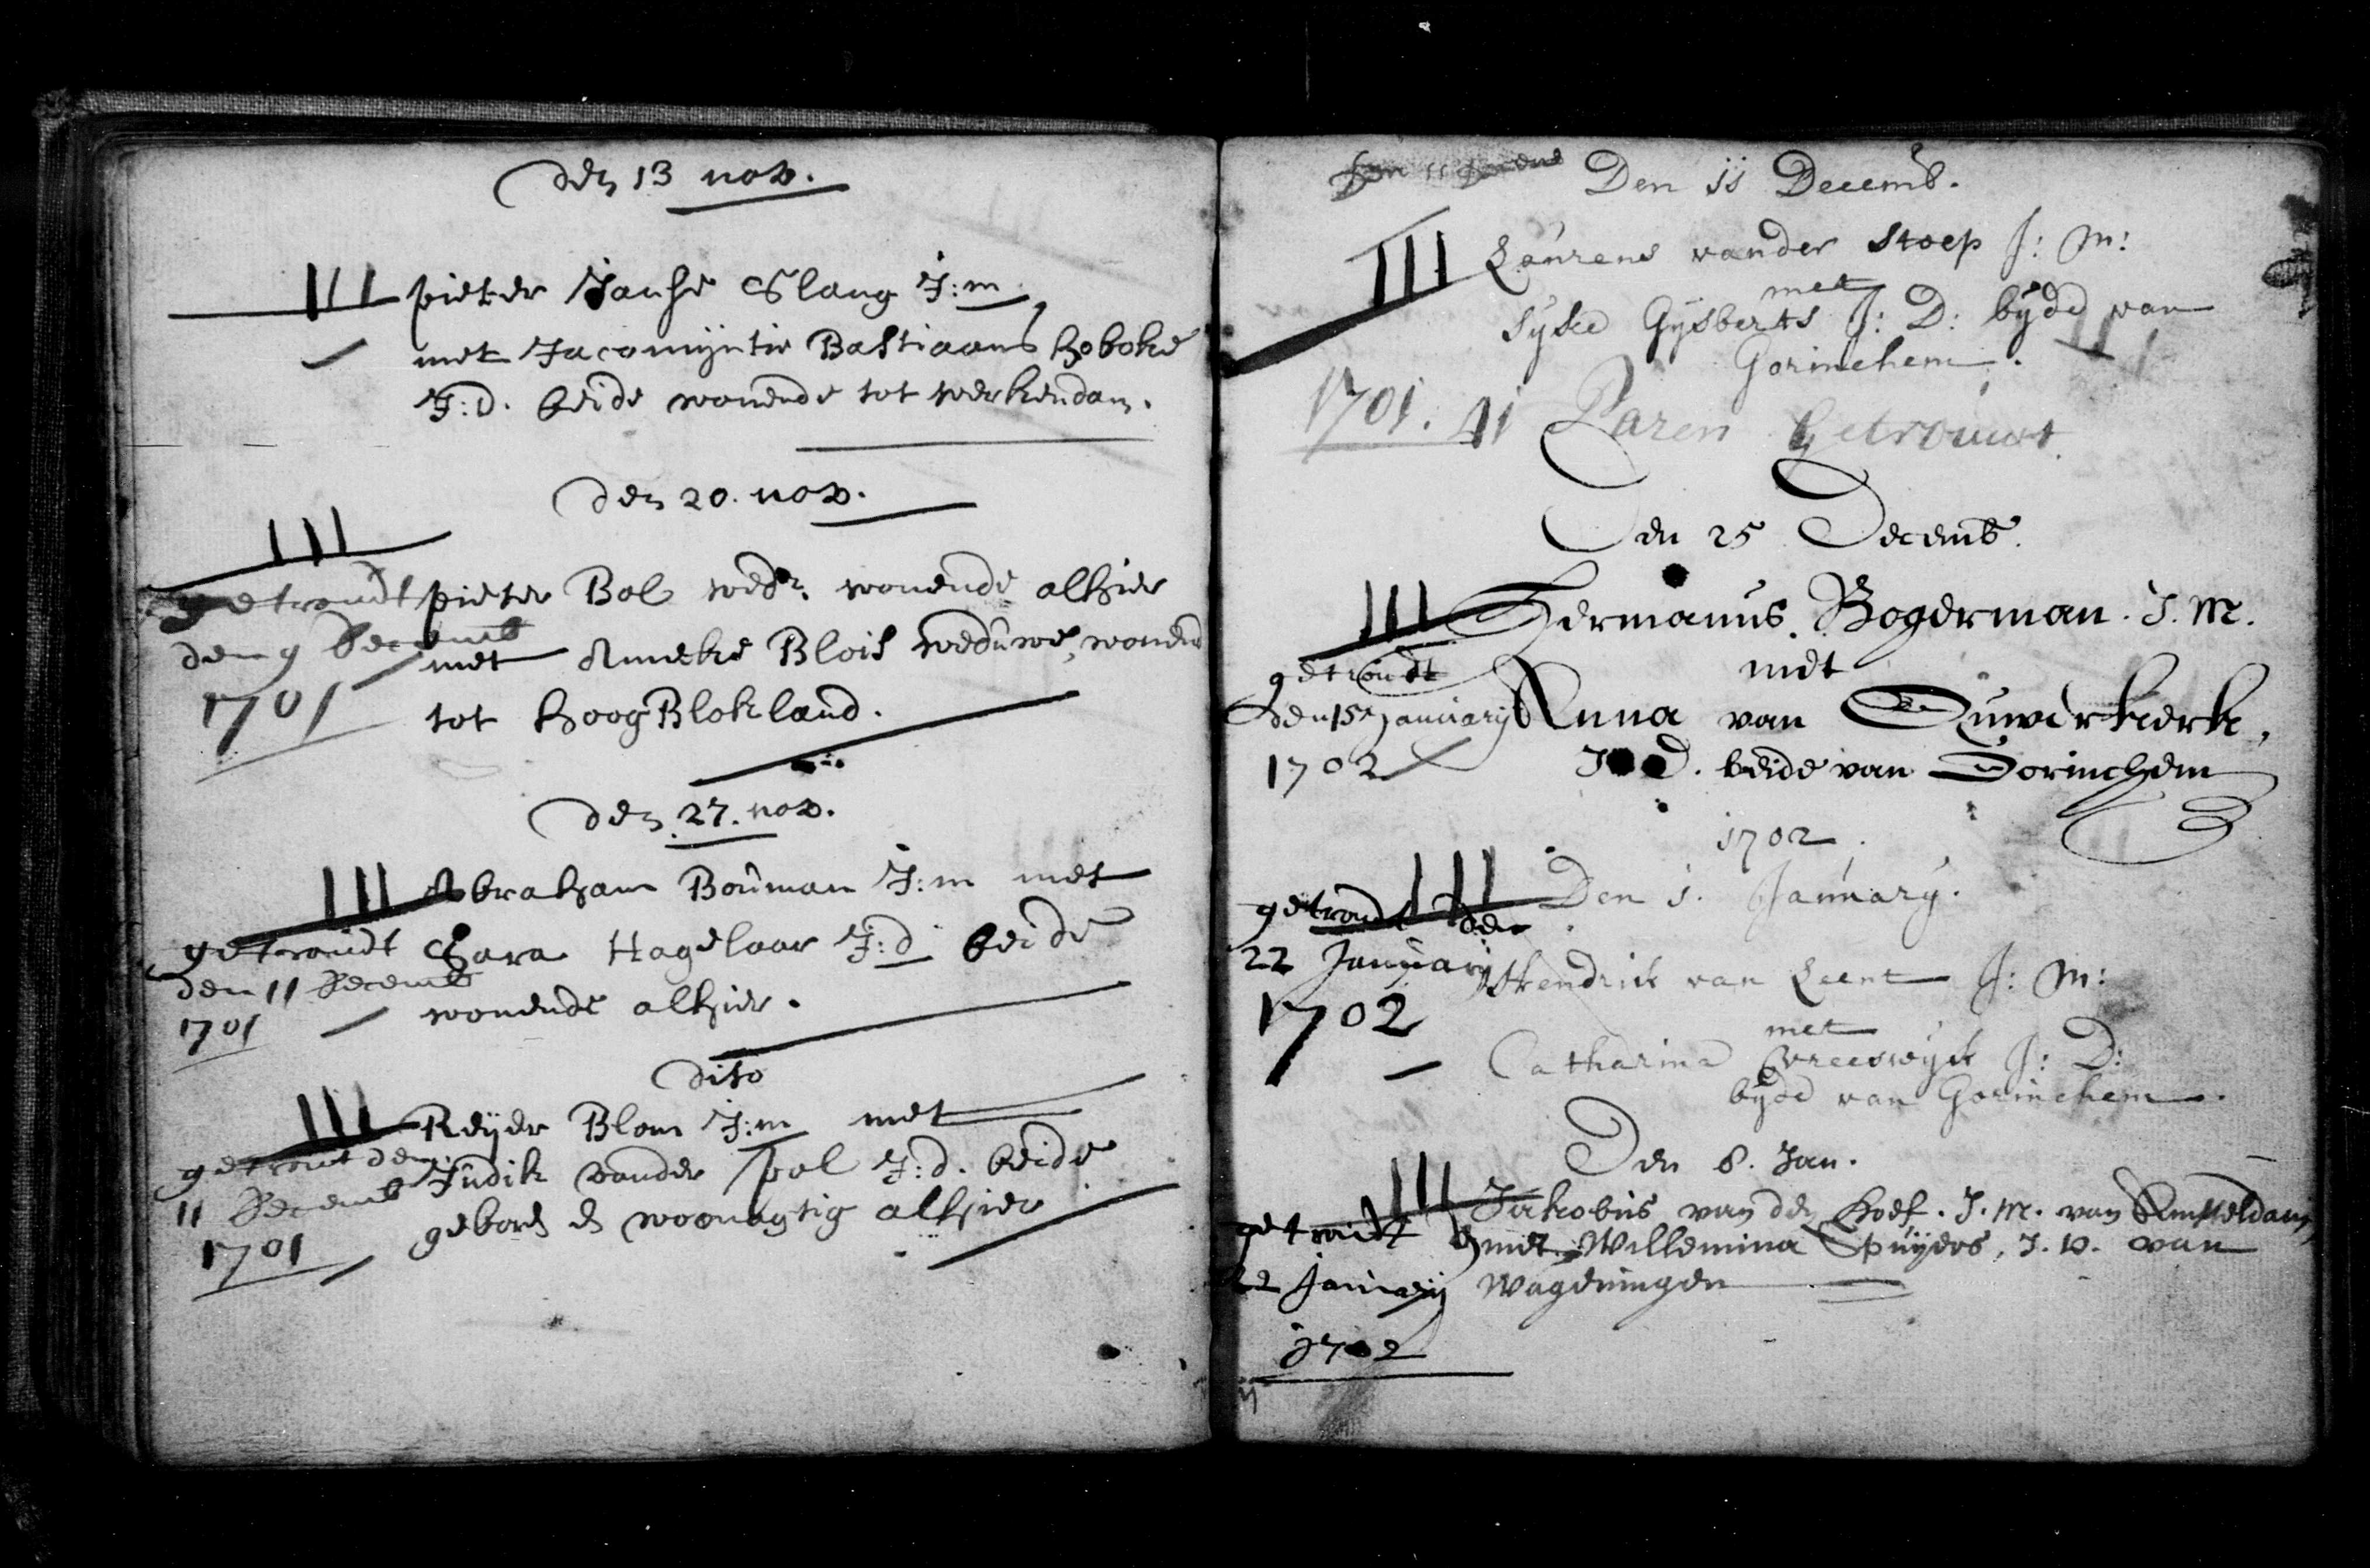 den 13 nov.
III pieter Janse Slang J:m
met Jacomijntie Bastiaans hoboke
J:d. beide wonende tot werkendam.
den 20. nov.
III
getroudt pieter Bol wedr. wonende alhier
den 9 Decemb met Anneke Blois weduwe, wonend
1701 tot hoog Blokland.
den 27. nov.
III Abraham Bouman J:m met
getroudt Sara Hagelaar J:d beide
den 11 Decemb
1701 wonende alhier.
dito
III Reijer Blom J:m met
getrout den Judik vander pol J:d. beide
11 Decemb geboren en woonagtig alhier
1701
Den 11 Decemb.
III Laurens vander Stoep J: M:
met
Syke Gysberts J: D: byde van
Gorinchem.
1701. 41 Paren Getrouwt.
Den 25 Decemb.
III Hermanus Bogerman. J. M.
getroudt met
den 15 January Anna van Ouwerkerk,
1702 J. D. beide van Gorinchem
1702.
III Den 1. January.
getroudt den
22 January Hendrick van Leent J: M:
1702 met
Catharina Vreeswyck J: D:
byde van Gorinchem.
Den 8. Jan.
III Jakobus van der hoef. J. M. van Amsteldam,
getroudt met Willemina Spuyers, J. D. van
22 January Wageningen
1702